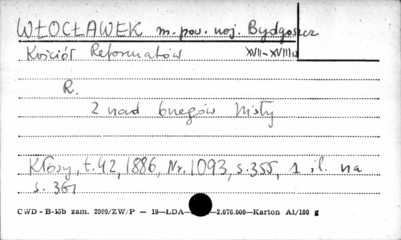 WŁOCŁAWEK m. pow. woj. Bydgoszcz
Kościół Reformatów XVII-XVIII w
R.
Z nad brzegów Wisły
Kłosy, t. 42, 1886, Nr. 1093, s. 355, 1 il. na
s. 361
CWD - B-15b zam. 2909/ZW/P — 19—ŁDA— —2.070.000—Karton A1/180 g